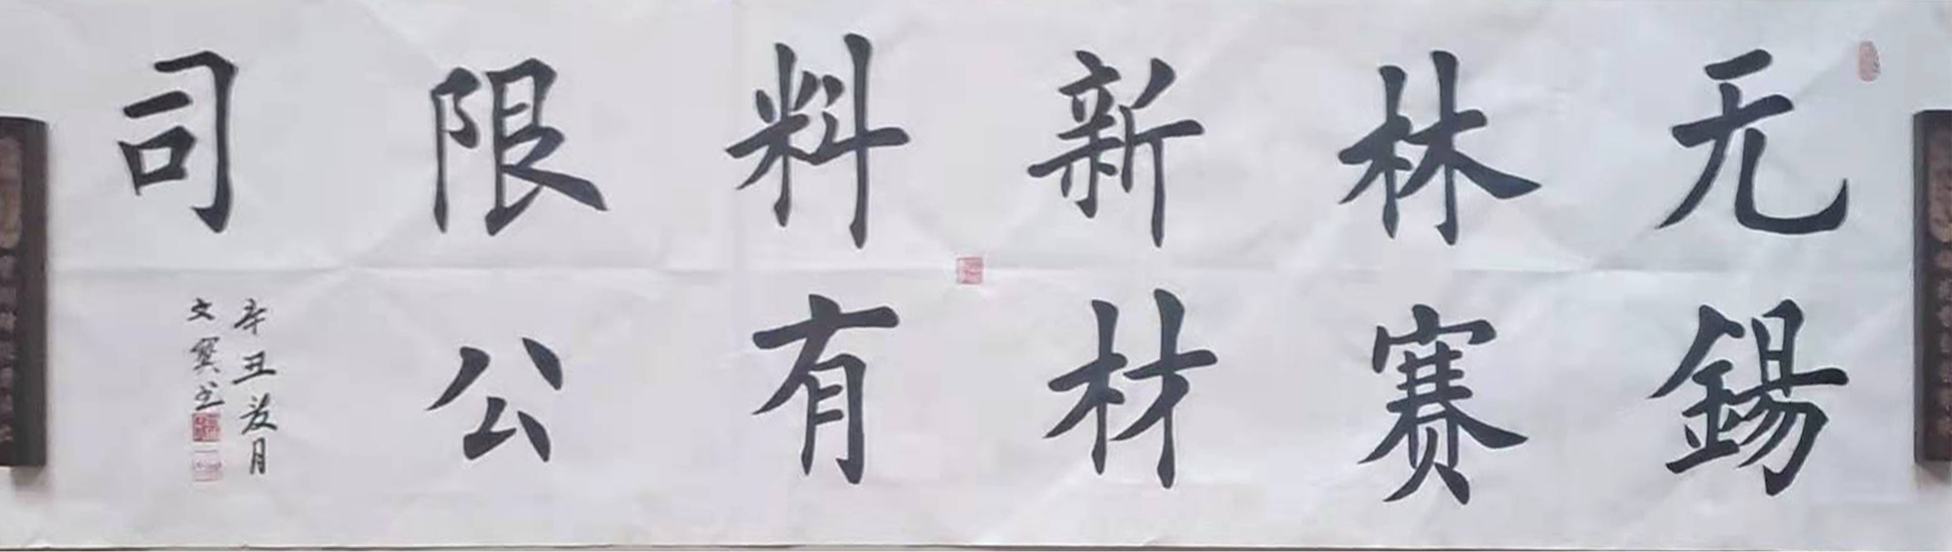 无錫
林赛
新材
料有
限公
司
辛丑月
文书